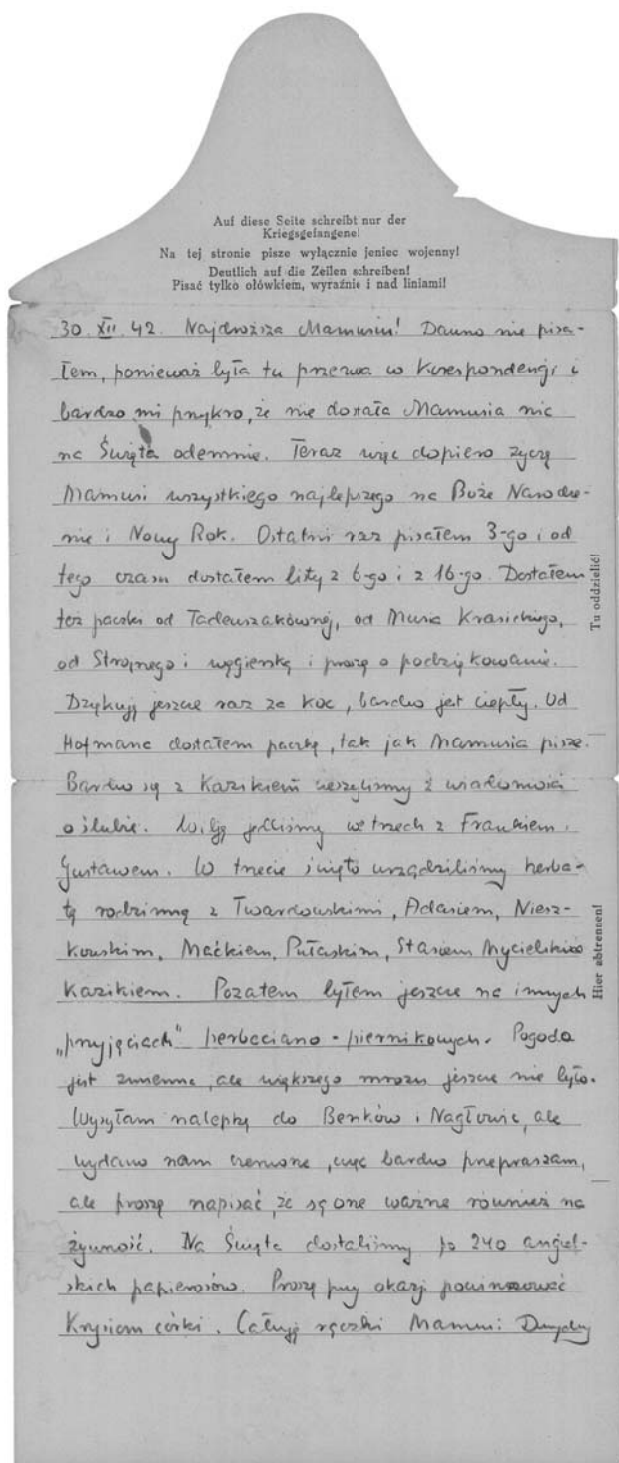 Auf diese Seite schreibt nur der
Kriegsgefangene!
Na tej stronie pisze wyłącznie jeniec wojenny!
Deutlich auf die Zeilen schreiben!
Pisać tylko ołówkiem, wyraźnie i nad liniami!
30. XII. 42. Najdroższa Mamusiu! Dawno nie pisa-
łem, ponieważ była tu przerwa w korespondencji i
bardzo mi przykro, że nie dostała Mamusia nic
na Święta odemnie. Teraz więc dopiero życzę
Mamusi wszystkiego najlepszego na Boże Narodze-
nie i Nowy Rok. Ostatni raz pisałem 3-go i od
tego czasu dostałem listy z 6-go i z 16-go. Dostałem
też paczki od Tadeuszakównej, od Musia Krasickiego,
od Strojnego i węgierską i proszę o podziękowanie.
Dziękuję jeszcze raz za koc, bardzo jest ciepły. Od
Hofmana dostałem paczkę, tak jak Mamusia pisze.
Bardzo się z Kazikiem ucieszyliśmy z wiadomości
o ślubie. Wilję jedliśmy we trzech z Frankiem i
Gustawem. W trzecie święto urządziliśmy herba-
tę rodzinną z Twardowskimi, Adasiem, Niesz-
kowskim, Maćkiem, Pułaskim, Stasiem Mycielskim
Kazikiem. Pozatem byłem jeszcze na innych
„przyjęciach" herbaciano-piernikowych. Pogoda
jest zmienna, ale większego mrozu jeszcze nie było.
Wysyłam nalepkę do Benków i Nagłowic, ale
wydano nam czerwone, więc bardzo przepraszam,
ale proszę napisać, że są one ważne również na
żywność. Na Święta dostaliśmy po 240 angiel-
skich papierosów. Proszę przy okazji powinszować
Krysiom córki. Całuję rączki Mamusi
Tu oddzielić!
Hier abtrennen!